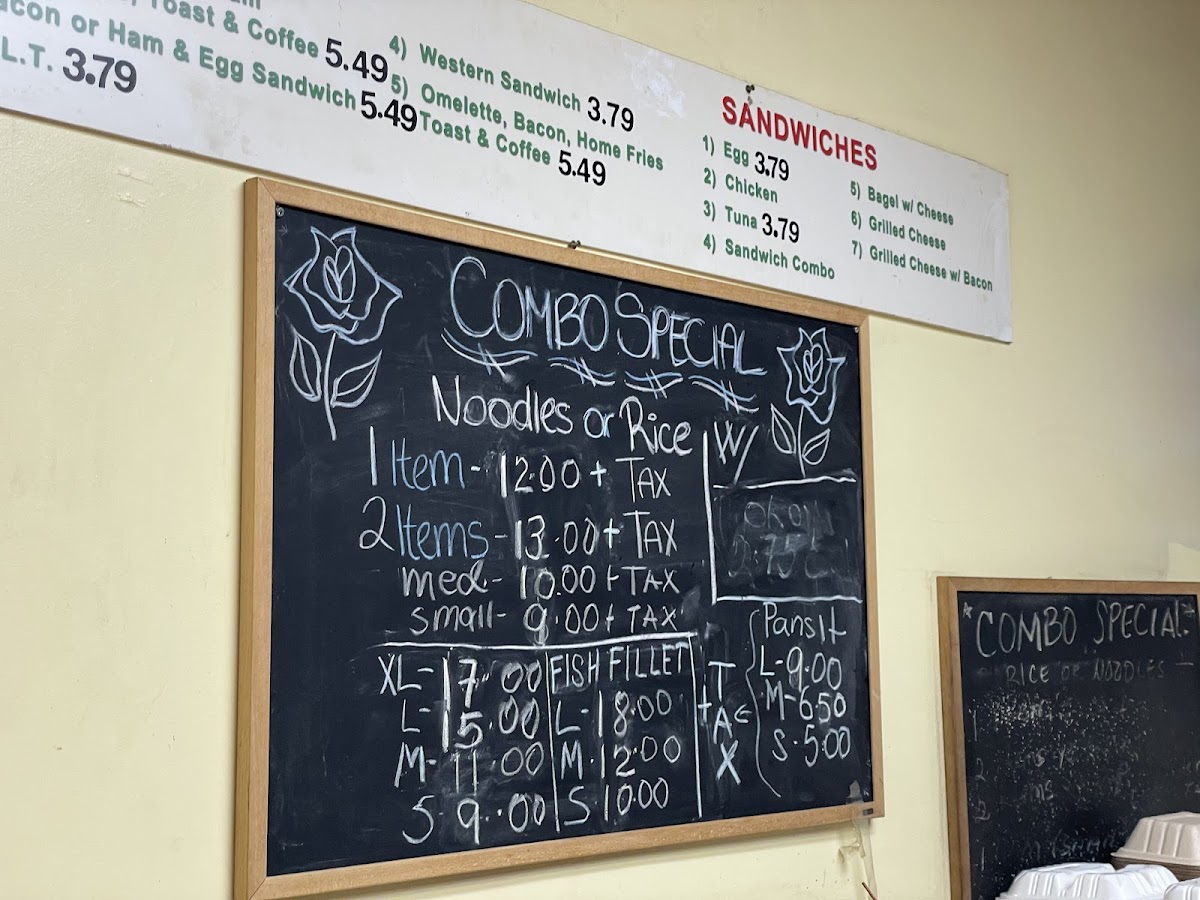 Toast & Coffee 5.49
or Ham & Egg Sandwich 5.49
L.T. 3.79
4) Western Sandwich 3.79
5) Omelette, Bacon, Home Fries
Toast & Coffee 5.49
SANDWICHES
1) Egg 3.79
2) Chicken
3) Tuna 3.79
4) Sandwich Combo
5) Bagel w/ Cheese
6) Grilled Cheese
7) Grilled Cheese w/ Bacon
COMBO SPECIAL
Noodles or Rice W/
1 Item - 12.00 + TAX
2 Items - 13.00 + TAX
med - 10.00 + TAX
small - 9.00 + TAX
XL - 17.00
L - 15.00
M - 11.00
S 9.00
FISH FILLET
L - 18.00
M 12.00
S 10.00
+ TAX
Pansit
L - 9.00
M - 6.50
S - 5.00
COMBO SPECIAL
RICE OR NOODLES